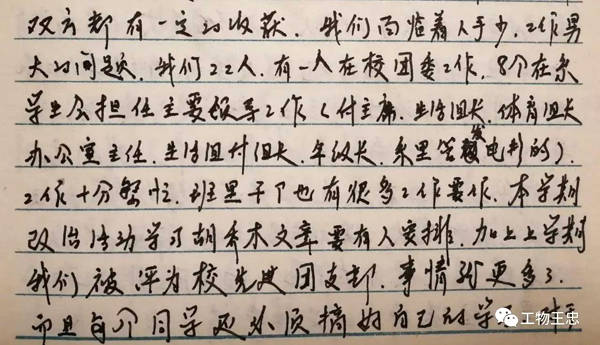 双方都有一定的收获。我们面临着人手少，工作男
大的问题。我们22人，有一人在校团委工作，8个在系
学生会担任主要领导工作（付主席、生活组长、体育组长
办公室主任、生活组付组长、年级长、系里管发电影的）
工作十分繁忙，班里干个也有很多工作要作，本学期
政治活动学习胡乔木文章要有人安排，加上上学期
我们被评为校先进团支部，事情就更多了。
而且每个同学还必须搞好自己的学
工物王忠